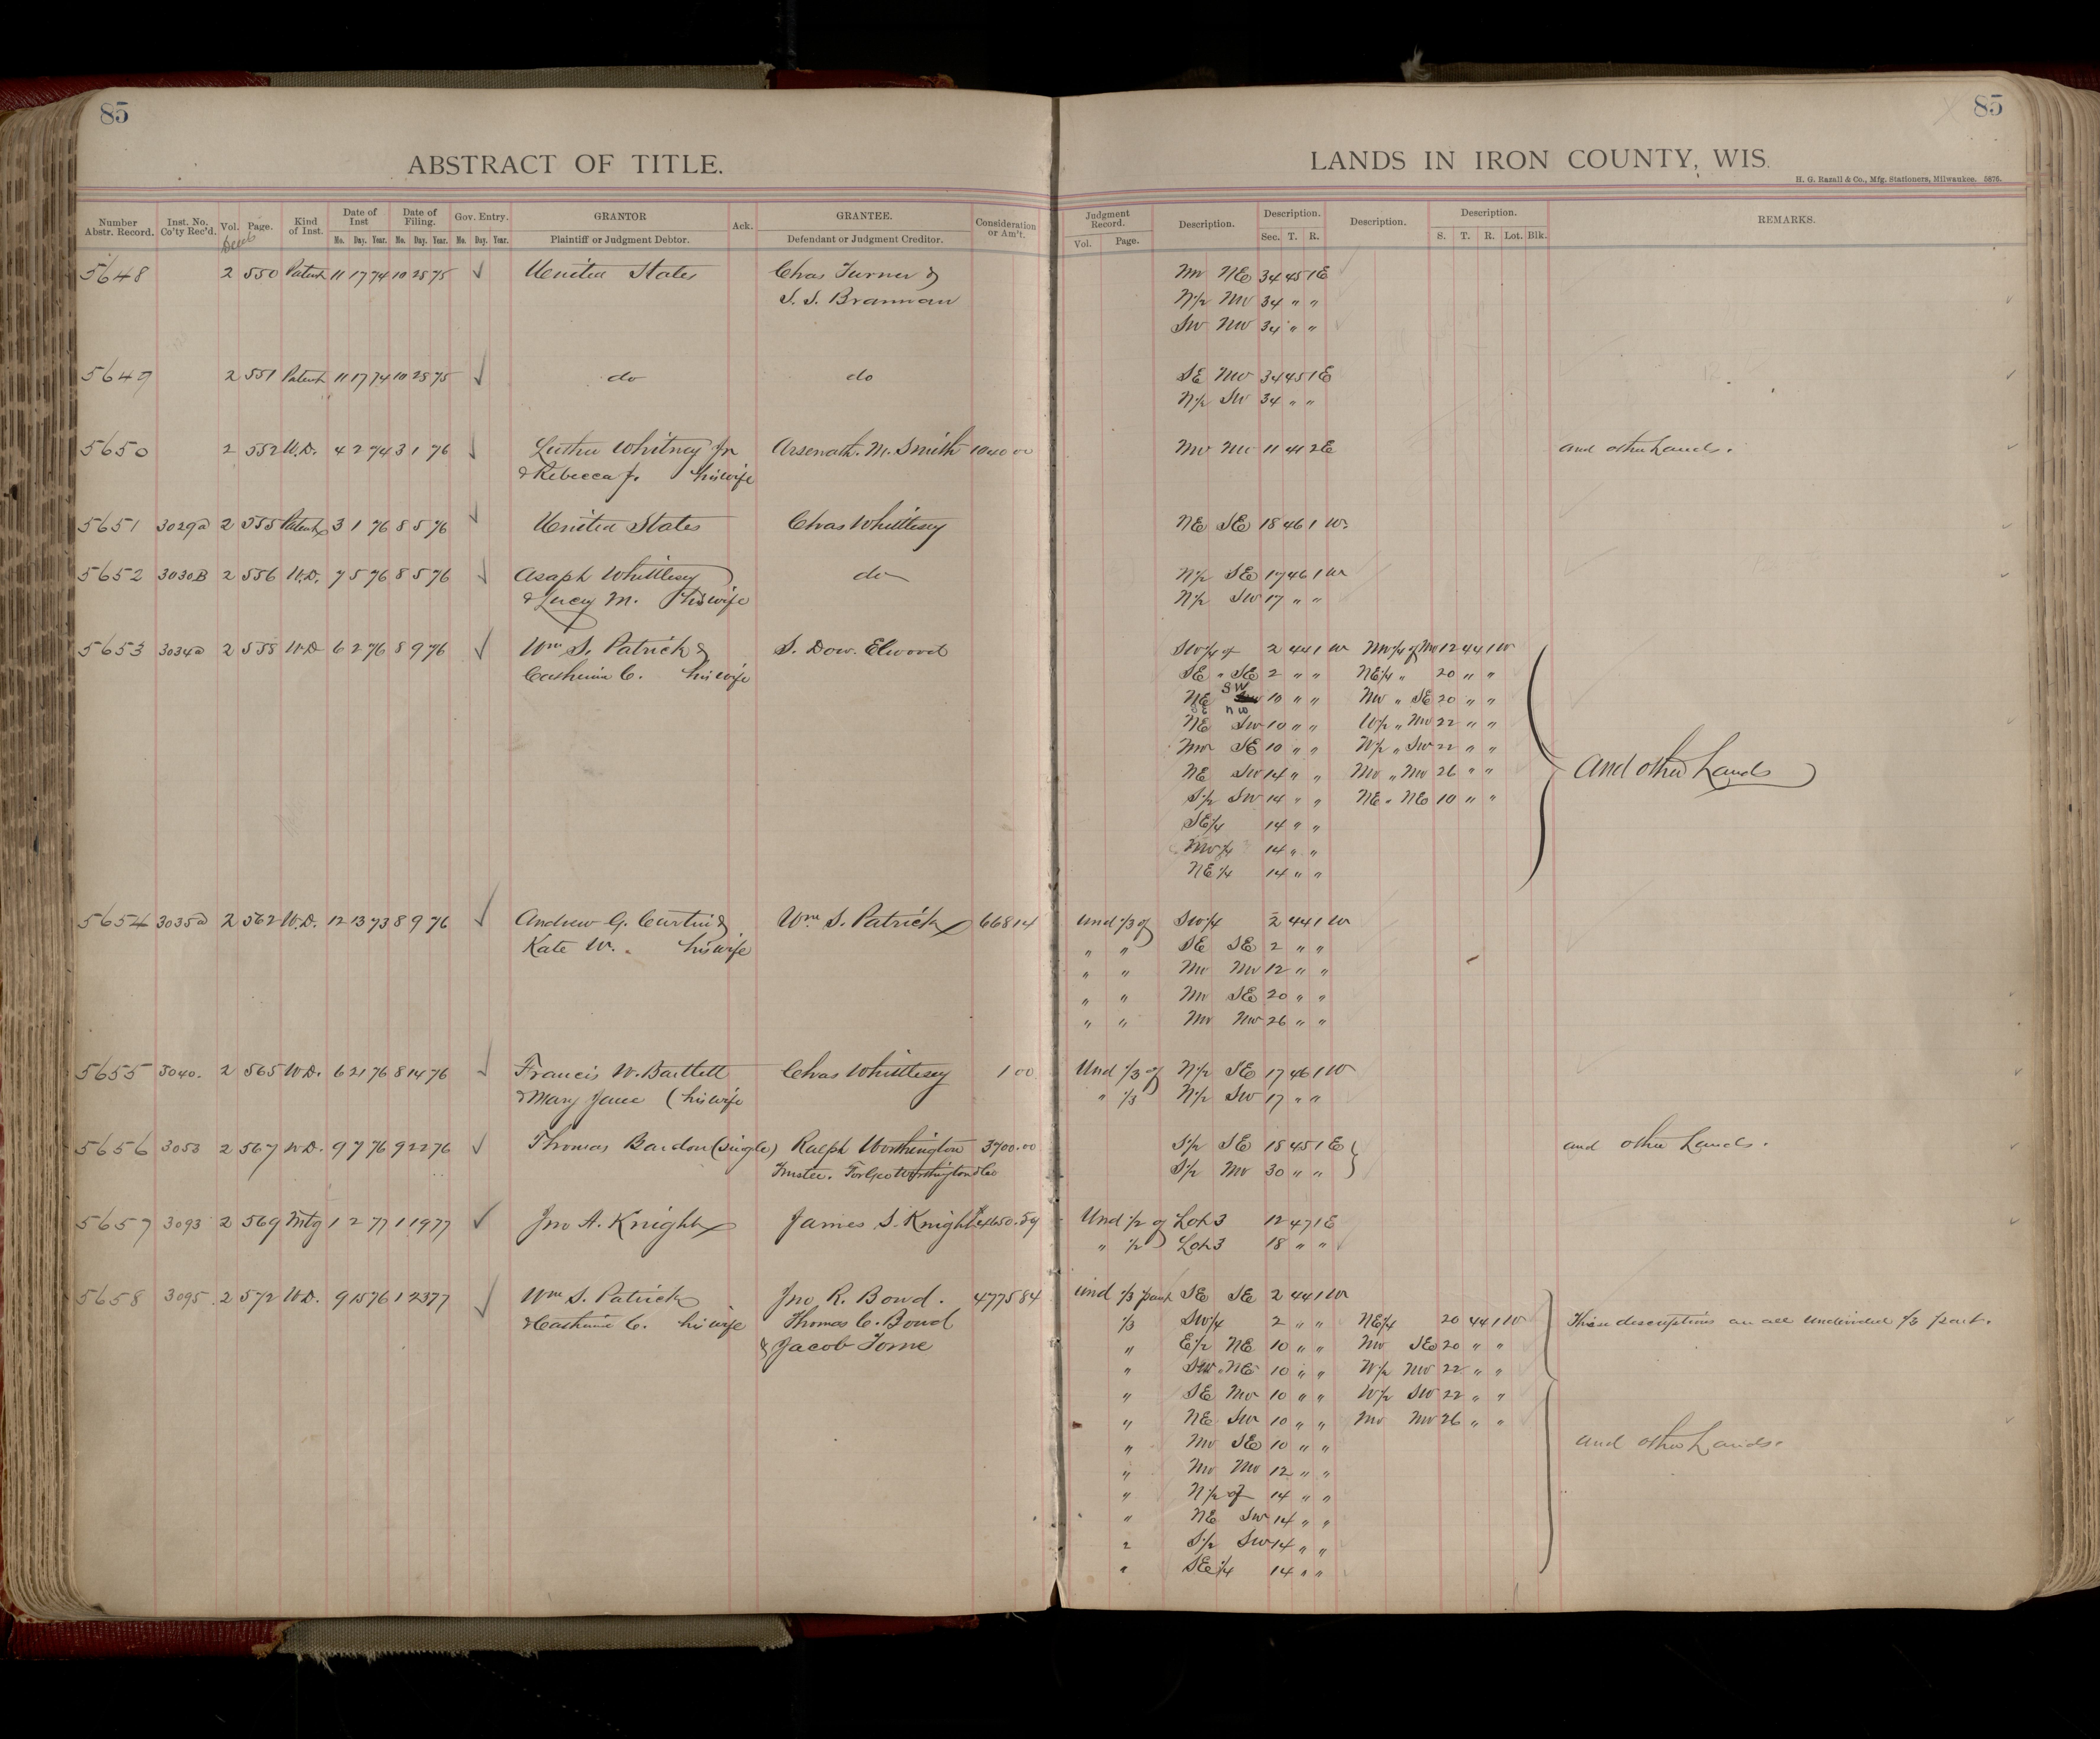 85
85
ABSTRACT OF TITLE.
LANDS IN IRON COUNTY, WIS.
H. G. Razall & Co., Mfg. Stationers, Milwaukee. 5876.
Number Abstr. Record. Inst. No. Co'ty Rec'd. Vol. Page. Kind of Inst. Date of Inst Date of Filing. Gov. Entry. GRANTOR Ack. GRANTEE. Consideration or Am't. Judgment Record. Description. Description. Description. Description. REMARKS.
Deeds Mo. Day. Year. Mo. Day. Year. Mo. Day. Year. Plaintiff or Judgment Debtor. Defendant or Judgment Creditor. Vol. Page. Sec. T. R. S. T. R. Lot. Blk.
5648 2 550 Patent 11 17 74 10 25 75 ✓ United States Chas Turner & NW NE 34 45 1E
S. S. Brannan N½ NW 34 " "
SW NW 34 " "
5649 2 551 Patent 11 17 74 10 25 75 ✓ do do SE NW 34 45 1E
N½ SW 34 " "
5650 2 552 W.D. 4 2 74 3 1 76 ✓ Luther Whitney Jr Arsenath. M. Smith 1040 00 NW NW 11 41 2E and other Lands.
& Rebecca J. his wife
5651 3029a 2 555 Patent 3 1 76 8 5 76 ✓ United States Chas Whittlesey NE SE 18 46 1 W.
5652 3030B 2 556 W.D. 7 5 76 8 5 76 ✓ Asaph Whittlesey do N½ SE 17 46 1 W
& Lucy M. his wife N½ SW 17 " "
5653 3034a 2 558 W.D 6 2 76 8 9 76 ✓ Wm S. Patrick & S. Dow. Elwood SW¼ of 2 44 1 W NW¼ of NW 12 44 1 W
Cashmir C. his wife SE " SE 2 " " NE¼ " 20 " "
NE SW 10 " " NW " SE 20 " "
SE NW
NE SW 10 " " W½ " NW 22 " "
NW SE 10 " " W½ " SW 22 " "
NE SW 14 " " NW " NW 26 " " And other Lands
S½ SW 14 " " NE " NE 10 " "
SE¼ 14 " "
NW¼ 14 " "
NE¼ 14 " "
5654 3035a 2 562 W.D. 12 13 73 8 9 76 ✓ Andrew G. Curtin & Wm S. Patrick 668 14 Und ⅓ of SW¼ 2 44 1 W
Kate W. his wife " " SE SE 2 " "
" " NW NW 12 " "
" " NW SE 20 " "
" " NW NW 26 " "
5655 3040. 2 565 W.D. 6 21 76 8 14 76 ✓ Francis W. Bartlett Chas Whittlesey 1 00 Und ⅓ of N½ SE 17 46 1 W
& Mary Jane (his wife " ⅓ N½ SW 17 " "
5656 3053 2 567 W.D. 9 7 76 9 22 76 ✓ Thomas Bardon (single) Ralph Worthington 3700.00 S½ SE 18 45 1 E and other Lands.
Trustee. For Geo Worthington & Co S½ NW 30 " "
5657 3093 2 569 Mtg 1 2 77 1 19 77 ✓ Jno A. Knight James S. Knight 4650.59 Und ½ of Lot 3 12 47 1 E
" ½ Lot 3 18 " "
5658 3095 2 572 W.D. 9 15 76 1 23 77 ✓ Wm S. Patrick Jno R. Bond. 4775 84 und ⅓ part SE SE 2 44 1 W
& Cashmir C. his wife Thomas C. Bond ⅓ SW¼ 2 " " NE¼ 20 44 1 W These descriptions are all undivided ⅓ part.
& Jacob Tome " E½ NE 10 " " NW SE 20 " "
" SW NE 10 " " W½ NW 22 " "
" SE NW 10 " " W½ SW 22 " "
" NE SW 10 " " NW NW 26 " "
" NW SE 10 " " and other Lands.
" NW NW 12 " "
" N½ of 14 " "
" NE SW 14 " "
" S½ SW 14 " "
" SE¼ 14 " "